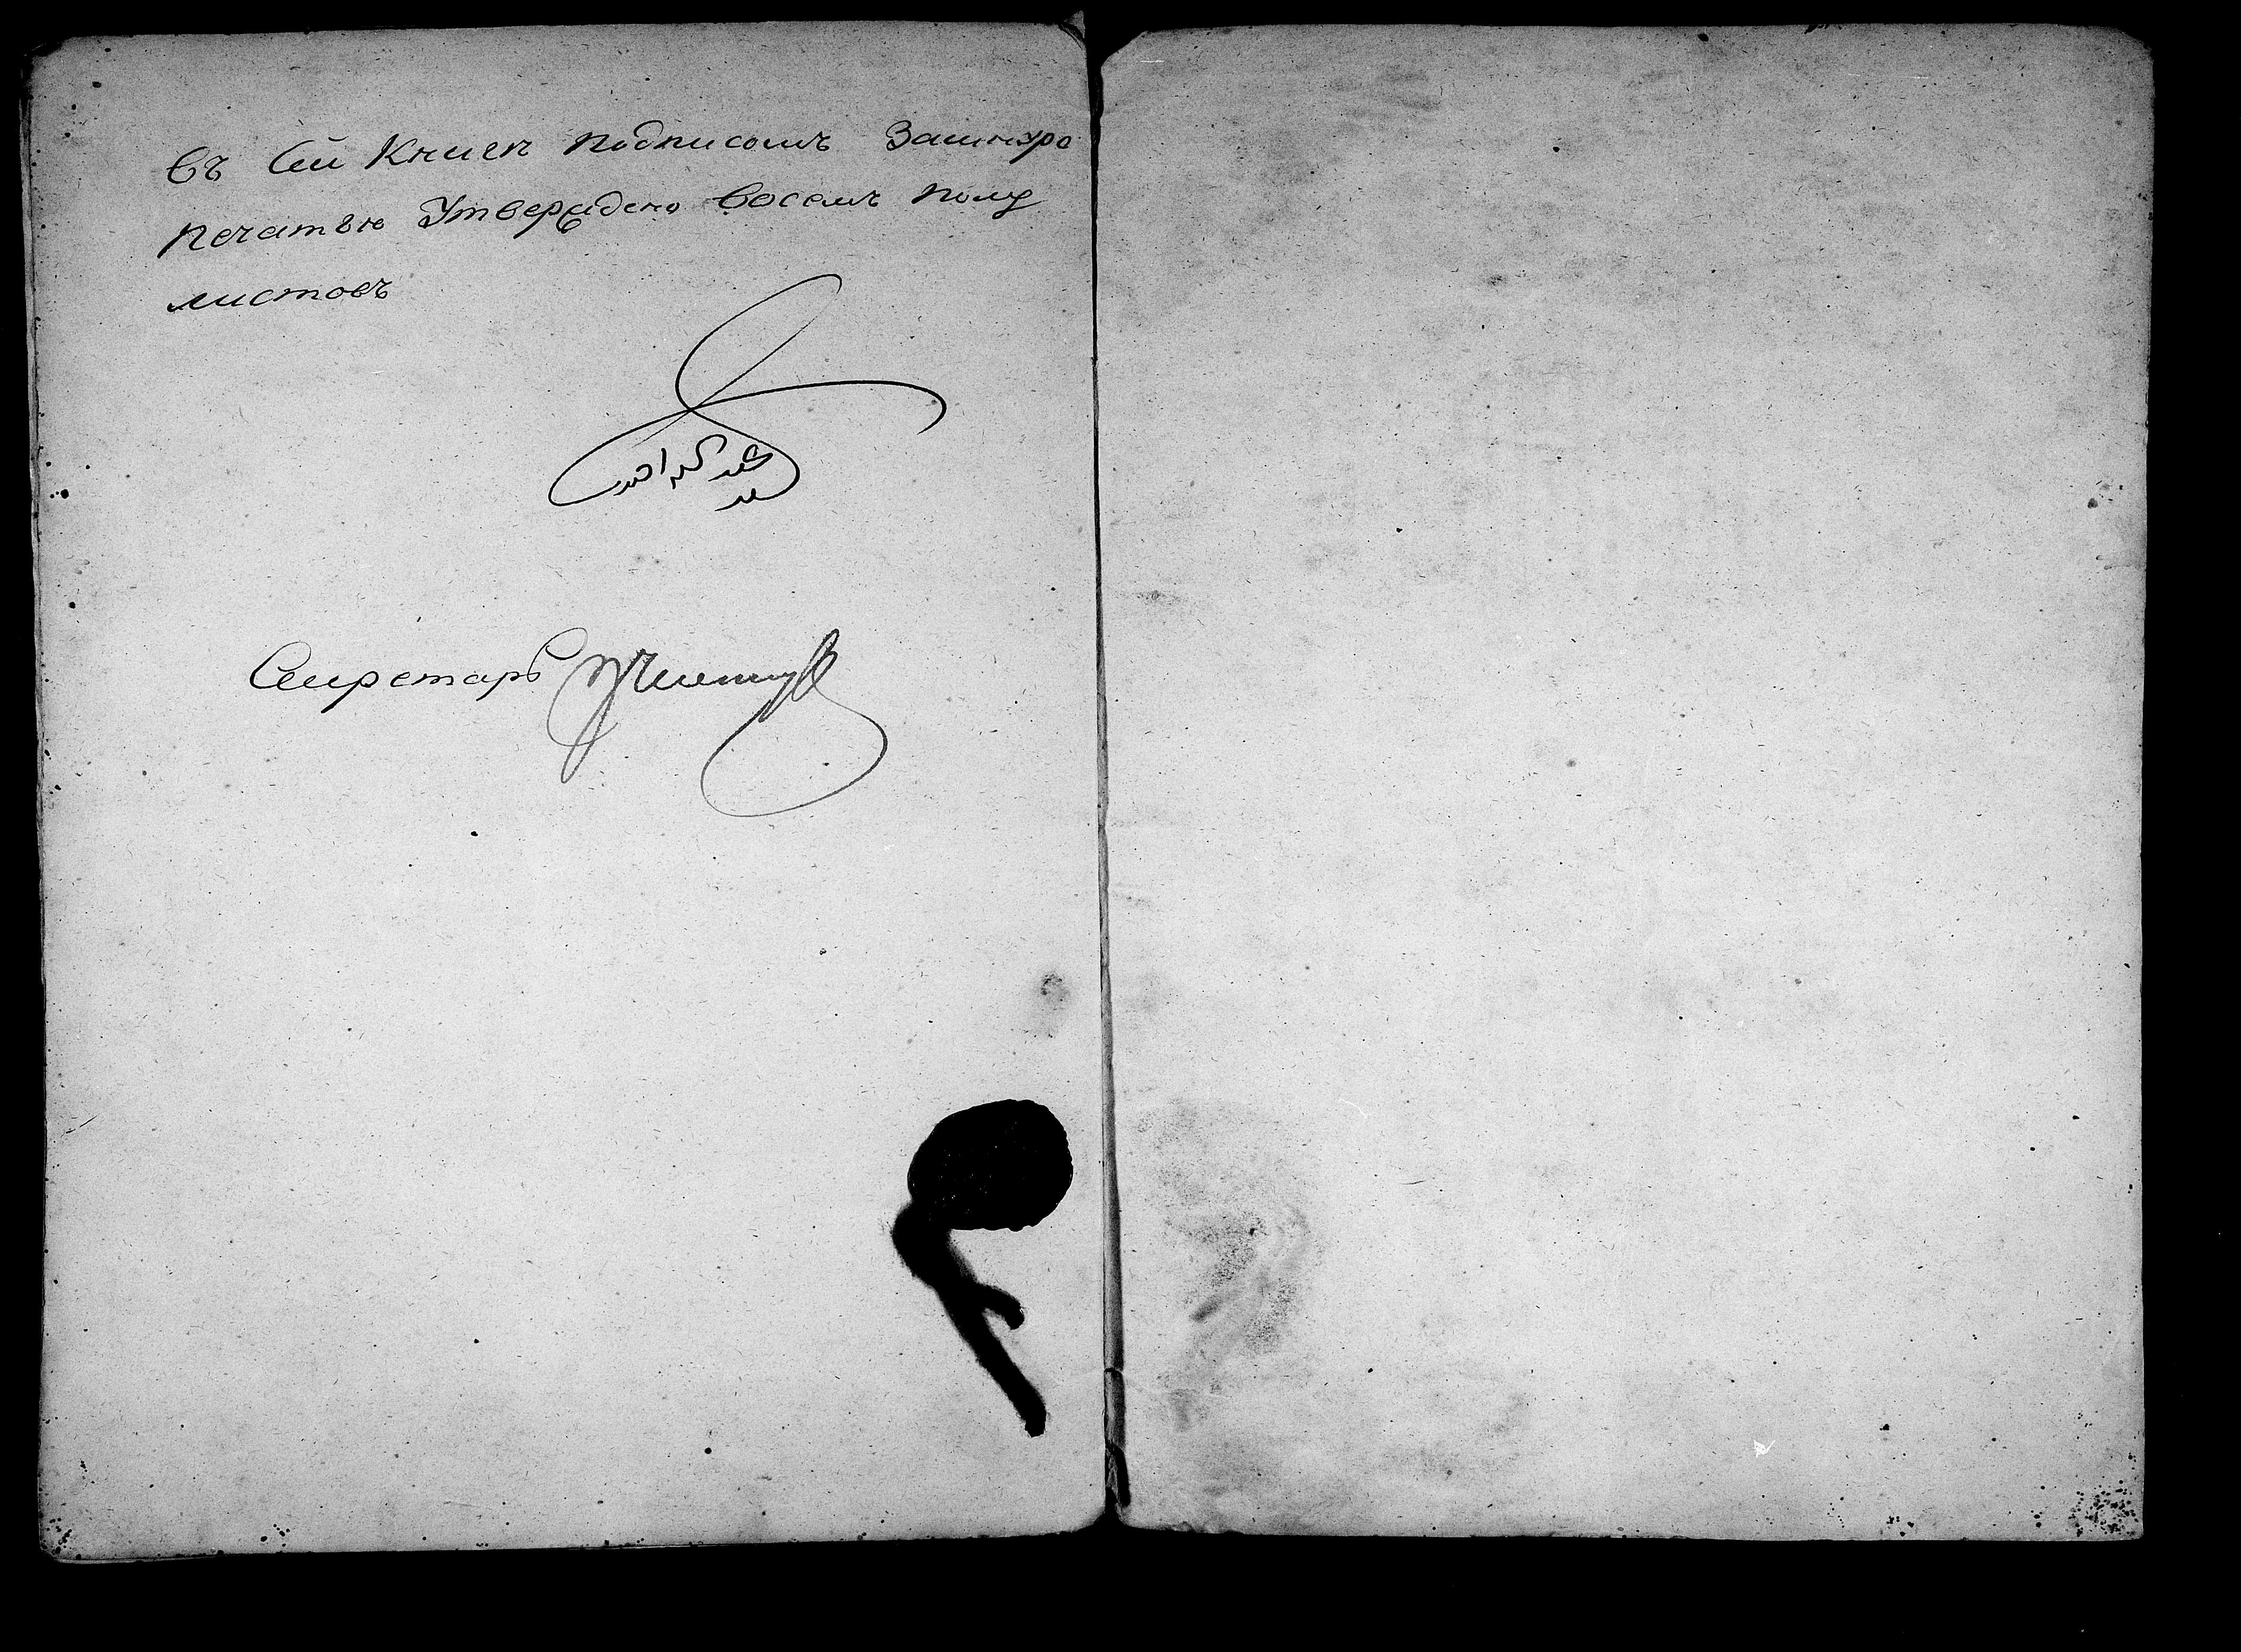 Въ Сей Книгѣ подписомъ Зашнуро
печатью Утверждено восемъ полу
листовъ
Секретарь